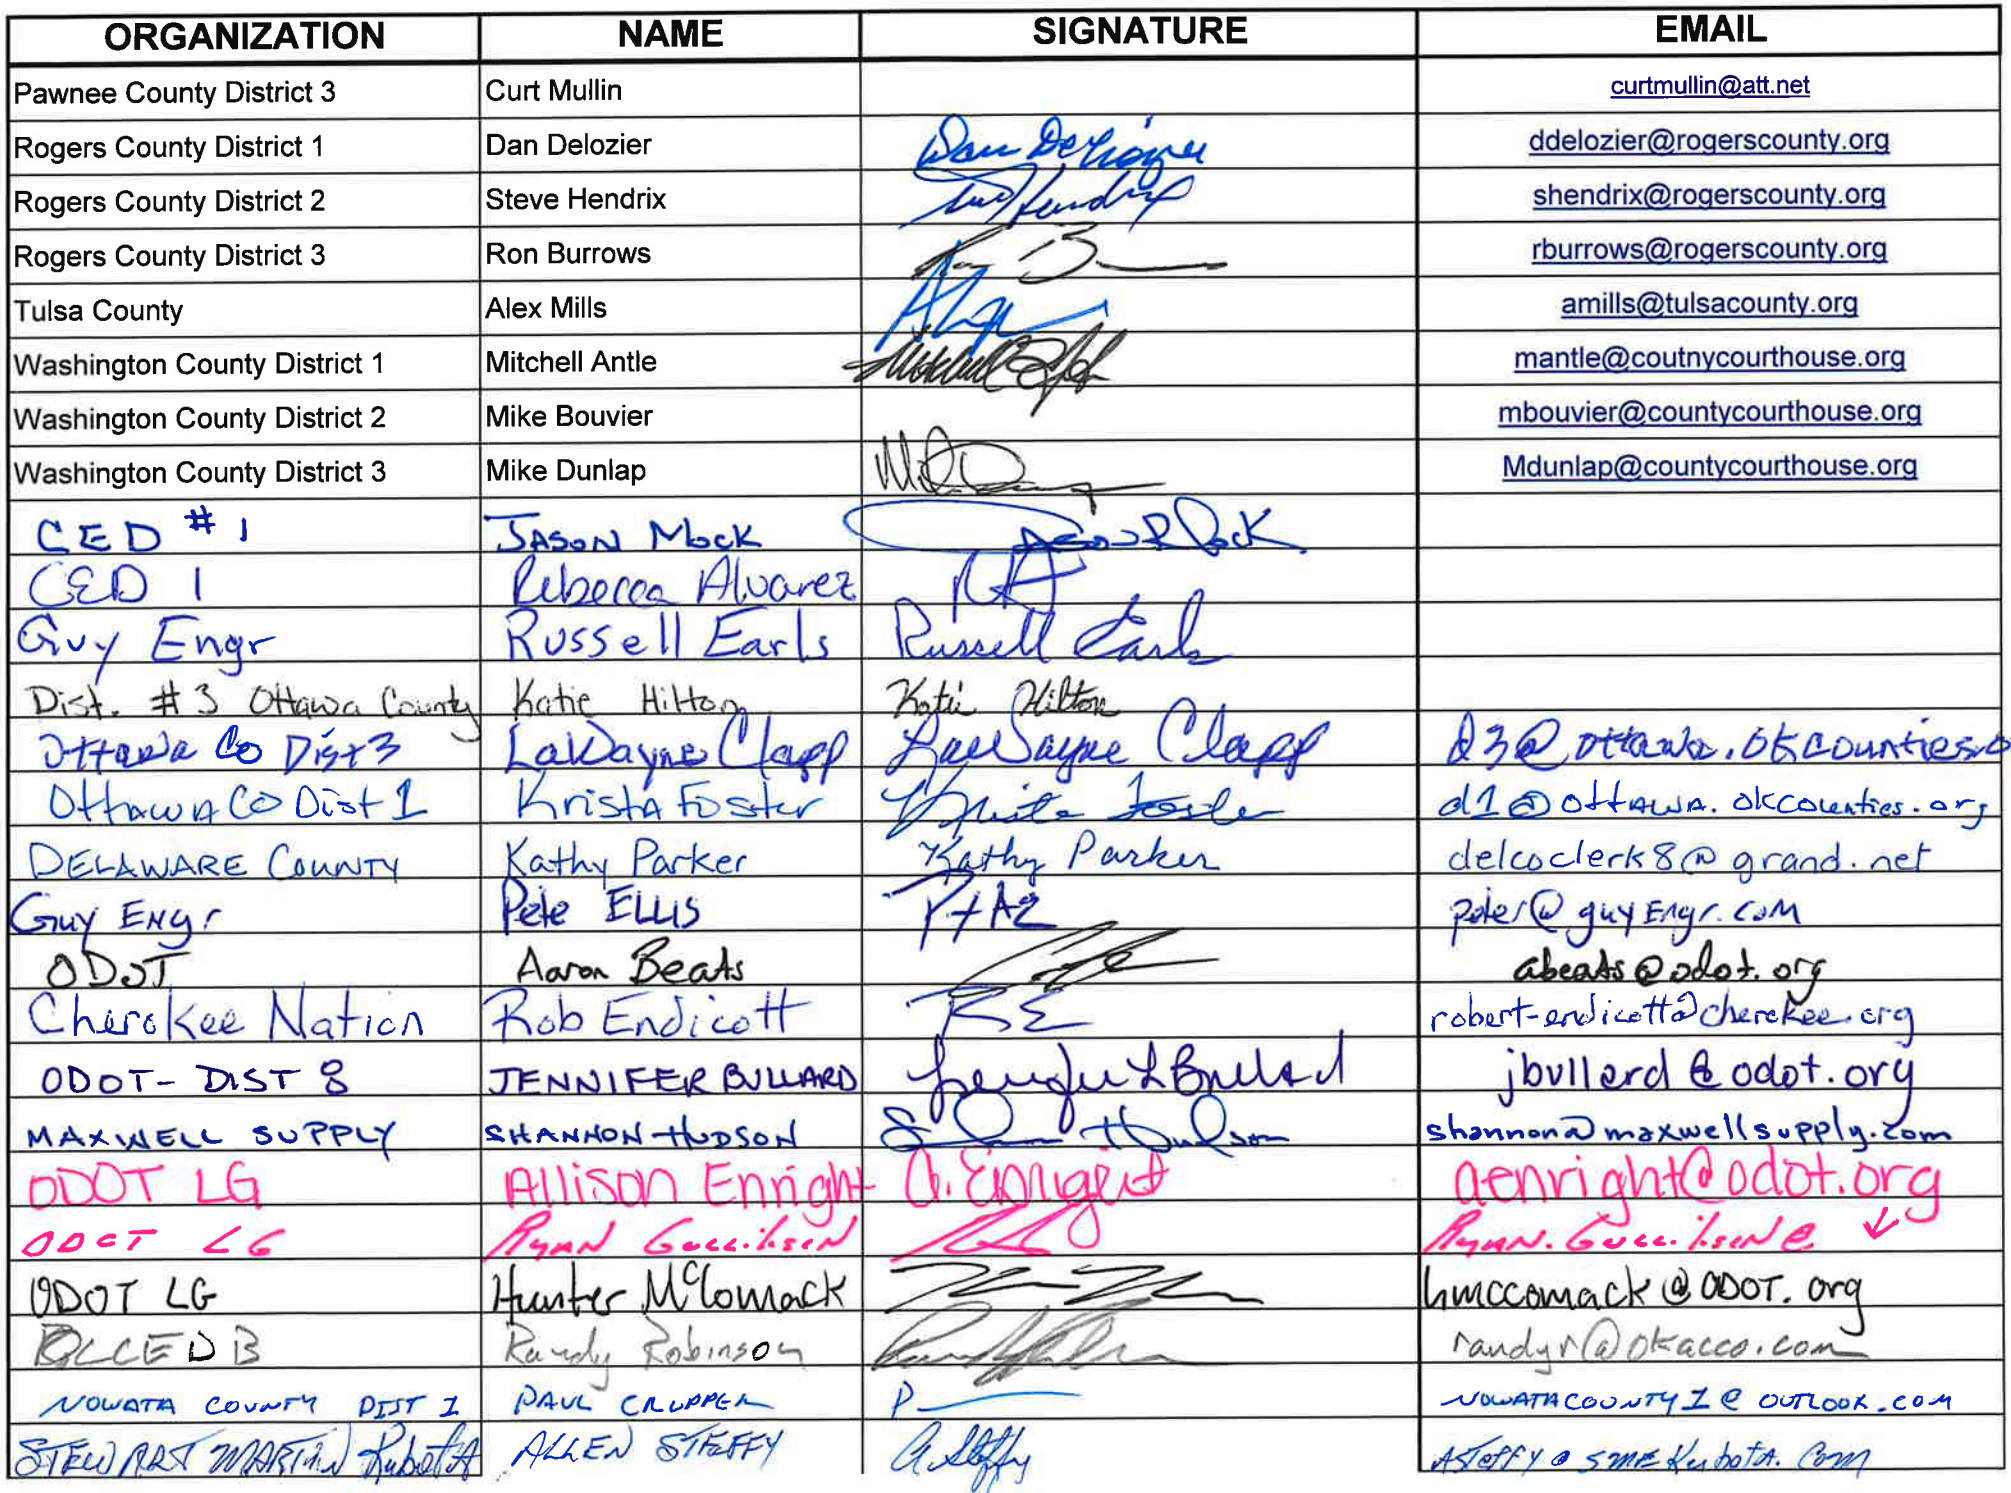 ORGANIZATION NAME SIGNATURE EMAIL
Pawnee County District 3 Curt Mullin curtmullin@att.net
Rogers County District 1 Dan Delozier Dan Delozier ddelozier@rogerscounty.org
Rogers County District 2 Steve Hendrix Hendrix shendrix@rogerscounty.org
Rogers County District 3 Ron Burrows rburrows@rogerscounty.org
Tulsa County Alex Mills amills@tulsacounty.org
Washington County District 1 Mitchell Antle Mitchell mantle@coutnycourthouse.org
Washington County District 2 Mike Bouvier mbouvier@countycourthouse.org
Washington County District 3 Mike Dunlap Mdunlap@countycourthouse.org
CED #1 JASON MOCK
CED 1 Rebecca Alvarez RA
Guy Engr Russell Earls Russell Earls
Dist. #3 Ottawa County Katie Hilton Katie Hilton
Ottawa Co Dist 3 LaWayne Clapp LaWayne Clapp d3@ottawa.okcounties.o
Ottawa Co Dist 1 Krista Foster Krista Foster d1@ottawa.okcounties.org
DELAWARE COUNTY Kathy Parker Kathy Parker delcoclerk8@grand.net
Guy Engr Pete ELLIS peter@guyEngr.com
ODOT Aaron Beats abeats@odot.org
Cherokee Nation Rob Endicott RE robert-endicott@cherokee.org
ODOT- DIST 8 JENNIFER BULLARD Jennifer L Bullard jbullard@odot.org
MAXWELL SUPPLY SHANNON HUDSON Hudson shannon@maxwellsupply.com
ODOT LG Allison Enright A. Enright aenright@odot.org
ODOT LG RYAN Gullickson
ODOT LG Hunter McComack hmccomack@ODOT.org
Randy Robinson randyr@okacco.com
NOWATA COUNTY DIST 1 PAUL CRUPPER P NOWATACOUNTY1@OUTLOOK.COM
STEWART MARTIN Kubota ALLEN STEFFY A Steffy ASTEFFY@SMEKubota.Com